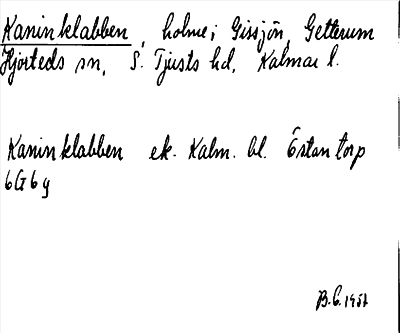 Kaninklabben, holme i Gissjön, Getterum
Hjorteds sn, S. Tjusts hd, Kalmar l.
Kaninklabben ek. Kalm. bl. Östantorp
6G6g
B.E. 1957